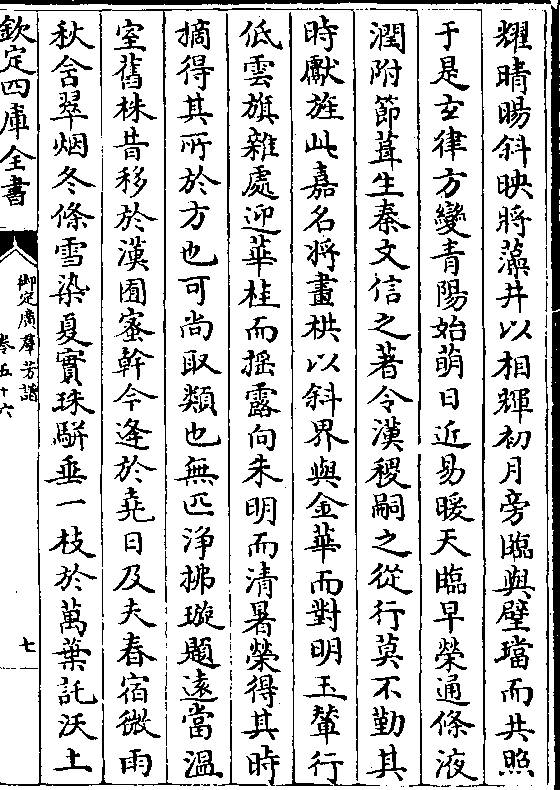 耀晴暘斜映將藻井以相輝初月旁臨與璧璫而共照
于是玄律方變青陽始萌日近易暖天臨早榮通條液
潤附節葺生秦文信之著令漢稷嗣之從行莫不勤其
時獻旌此嘉名將畫栱以斜界與金華而對明玉輦行
低雲旗雜處迎華桂而揺露向朱明而清暑榮得其時
摘得其所於方也可尚取類也無匹浄拂璇題遠當温
室舊株昔移於漢囿蜜幹今逢於堯日及夫春宿微雨
秋含翠烟冬條雪染夏實珠駢垂一枝於萬葉託沃土
欽定四庫全書
御定廣羣芳譜
卷五十六
七